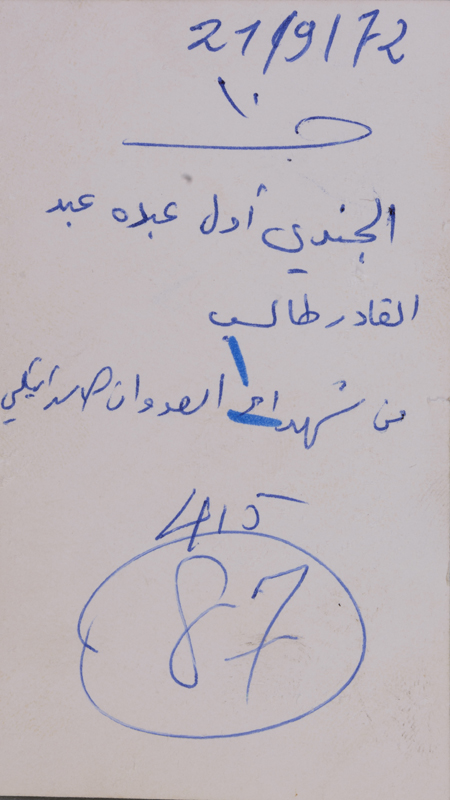 21/9/72
الجندي أول عبده عبد
القادر طالب
من شهداء العدوان الاسرائيلي
415
87